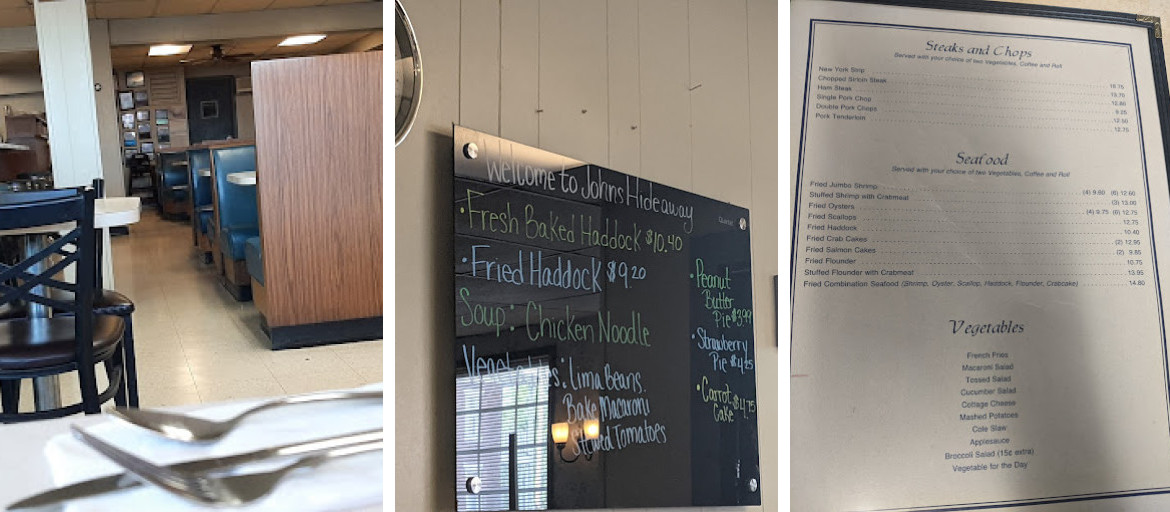 Welcome to Johns Hideaway
Quartet
• Fresh Baked Haddock $10.40
• Fried Haddock $9.20
Soup: Chicken Noodle
Vegetables: Lima Beans
Bake Macaroni
Stewed Tomatoes
• Peanut
Butter
Pie $3.99
• Strawberry
Pie
• Carrot
Cake $4.75
Steaks and Chops
Served with your choice of two Vegetables, Coffee and Roll
New York Strip 18.75
Chopped Sirloin Steak 13.70
Ham Steak 12.80
Single Pork Chop 9.25
Double Pork Chops 12.50
Pork Tenderloin 12.75
Seafood
Served with your choice of two Vegetables, Coffee and Roll
Fried Jumbo Shrimp (4) 9.60 (6) 12.60
Stuffed Shrimp with Crabmeat (3) 13.00
Fried Oysters (4) 9.75 (6) 12.75
Fried Scallops 12.75
Fried Haddock 10.40
Fried Crab Cakes (2) 12.95
Fried Salmon Cakes (2) 9.85
Fried Flounder 10.75
Stuffed Flounder with Crabmeat 13.95
Fried Combination Seafood (Shrimp, Oyster, Scallop, Haddock, Flounder, Crabcake) 14.80
Vegetables
French Fries
Macaroni Salad
Tossed Salad
Cucumber Salad
Cottage Cheese
Mashed Potatoes
Cole Slaw
Applesauce
Broccoli Salad (15¢ extra)
Vegetable for the Day